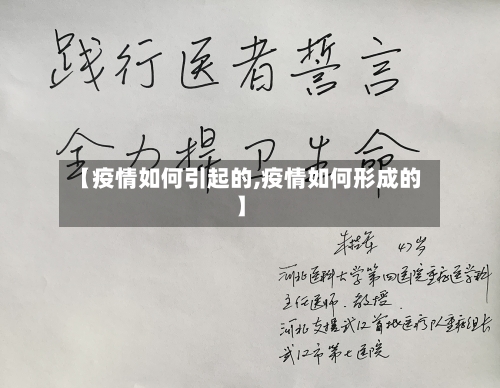 践行医者誓言
全力捍卫生命
【疫情如何引起的,疫情如何形成的
】
47岁
河北医科大学第四医院重症医学科
主任医师、教授
河北支援武汉首批医疗队重症组长
武汉市第七医院